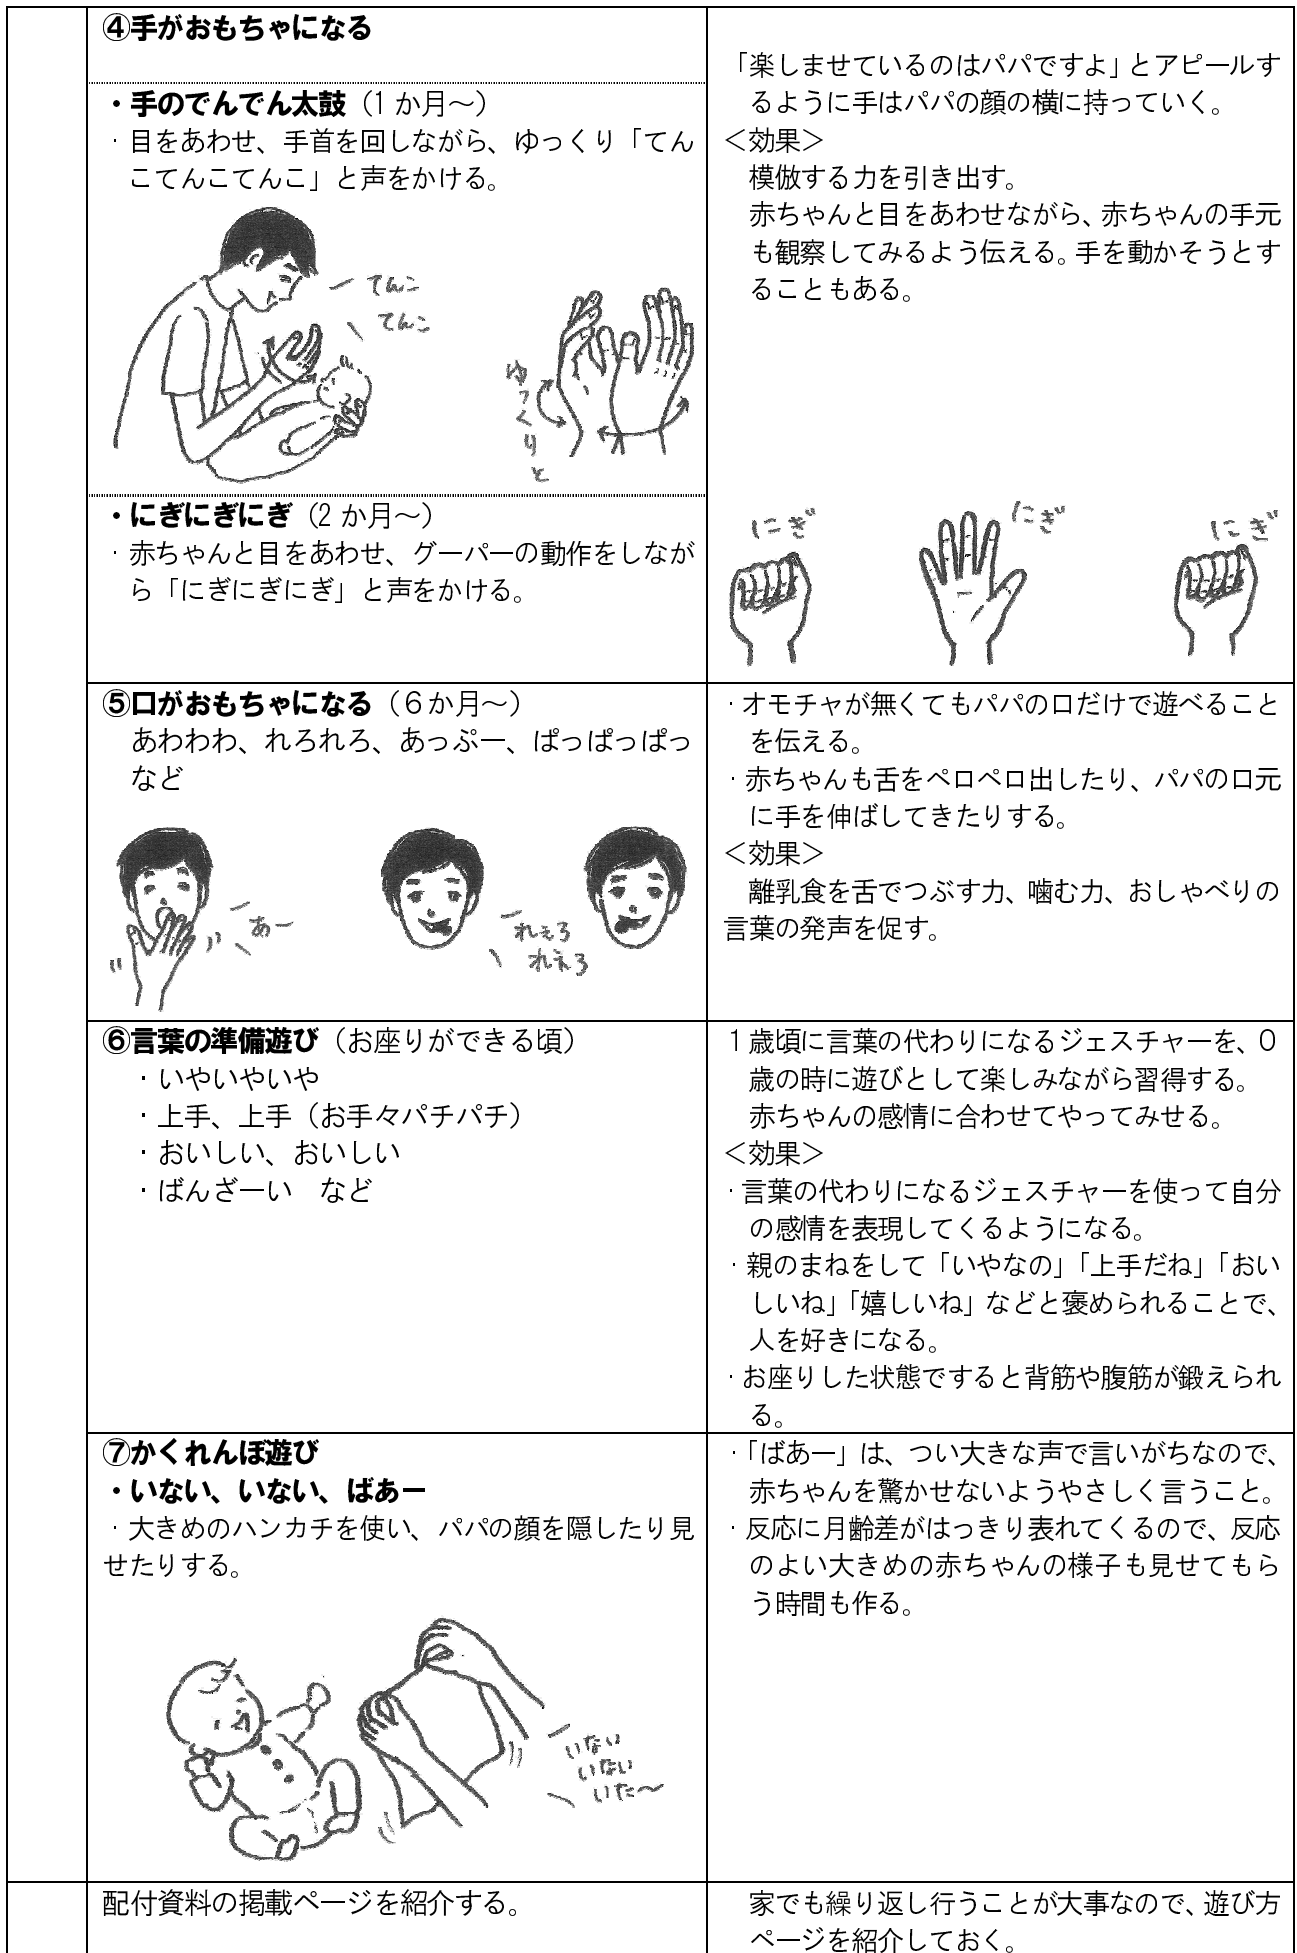 ④手がおもちゃになる
・手のでんでん太鼓（1か月～）
・目をあわせ、手首を回しながら、ゆっくり「てん
こてんこてんこ」と声をかける。
てんこ
てんこ
ゆっくりと
「楽しませているのはパパですよ」とアピールす
るように手はパパの顔の横に持っていく。
＜効果＞
模倣する力を引き出す。
赤ちゃんと目をあわせながら、赤ちゃんの手元
も観察してみるよう伝える。手を動かそうとす
ることもある。
・にぎにぎにぎ（2か月～）
・赤ちゃんと目をあわせ、グーパーの動作をしなが
ら「にぎにぎにぎ」と声をかける。
にぎ
にぎ
にぎ
⑤口がおもちゃになる（６か月～）
あわわわ、れろれろ、あっぷー、ぱっぱっぱっ
など
あー
れぇろ
れえろ
・オモチャが無くてもパパの口だけで遊べること
を伝える。
・赤ちゃんも舌をペロペロ出したり、パパの口元
に手を伸ばしてきたりする。
＜効果＞
離乳食を舌でつぶす力、噛む力、おしゃべりの
言葉の発声を促す。
⑥言葉の準備遊び（お座りができる頃）
・いやいやいや
・上手、上手（お手々パチパチ）
・おいしい、おいしい
・ばんざーい　など
１歳頃に言葉の代わりになるジェスチャーを、０
歳の時に遊びとして楽しみながら習得する。
赤ちゃんの感情に合わせてやってみせる。
＜効果＞
・言葉の代わりになるジェスチャーを使って自分
の感情を表現してくるようになる。
・親のまねをして「いやなの」「上手だね」「おい
しいね」「嬉しいね」などと褒められることで、
人を好きになる。
・お座りした状態ですると背筋や腹筋が鍛えられ
る。
⑦かくれんぼ遊び
・いない、いない、ばあー
・大きめのハンカチを使い、パパの顔を隠したり見
せたりする。
いない
いない
いた～
・「ばあー」は、つい大きな声で言いがちなので、
赤ちゃんを驚かせないようやさしく言うこと。
・反応に月齢差がはっきり表れてくるので、反応
のよい大きめの赤ちゃんの様子も見せてもら
う時間も作る。
配付資料の掲載ページを紹介する。
家でも繰り返し行うことが大事なので、遊び方
ページを紹介しておく。